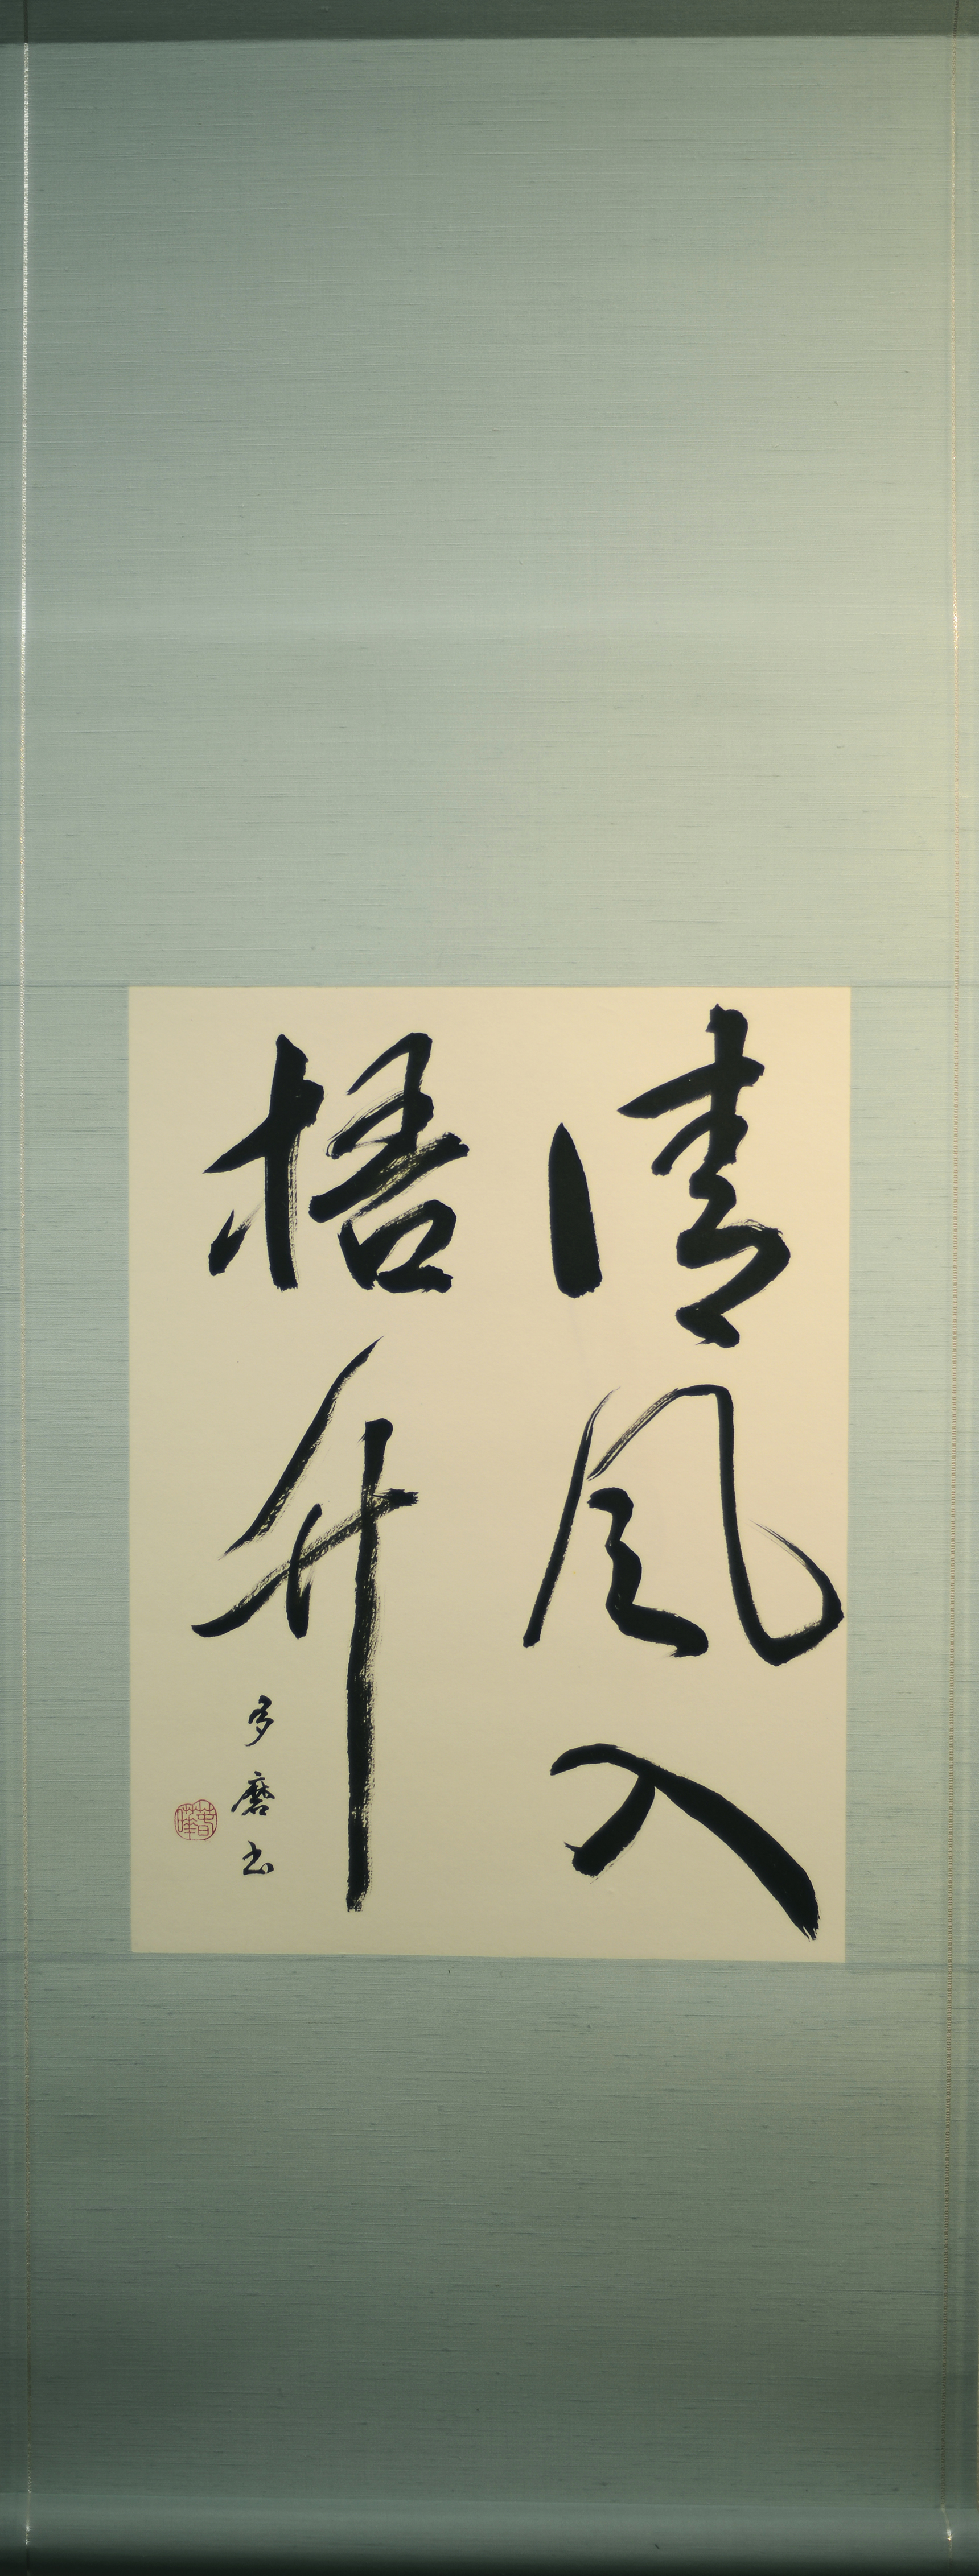 清風入
梧竹
多磨书